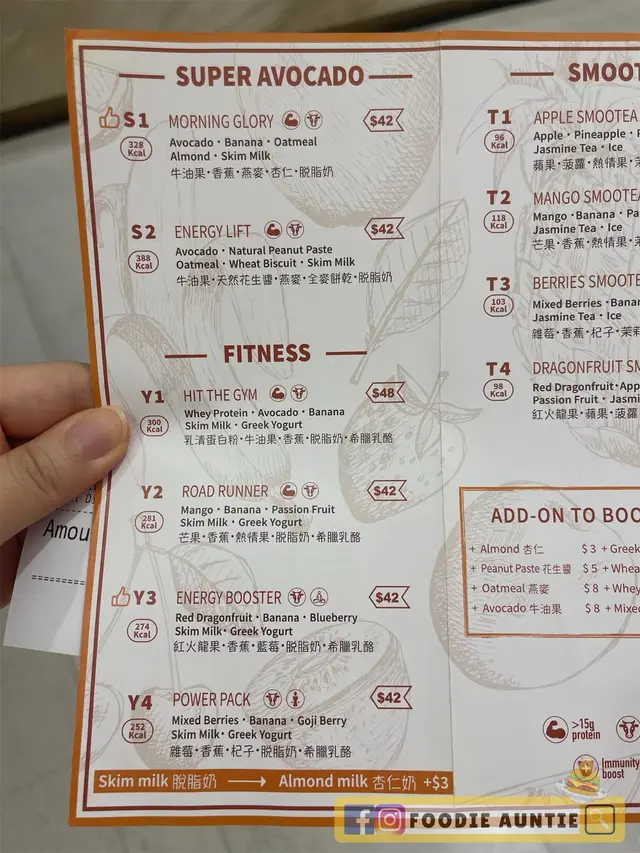 SUPER AVOCADO
S1 MORNING GLORY $42
328 Kcal
Avocado・Banana・Oatmeal
Almond・Skim Milk
牛油果・香蕉・燕麥・杏仁・脫脂奶
S2 ENERGY LIFT $42
388 Kcal
Avocado・Natural Peanut Paste
Oatmeal・Wheat Biscuit・Skim Milk
牛油果・天然花生醬・燕麥・全麥餅乾・脫脂奶
FITNESS
Y1 HIT THE GYM $48
300 Kcal
Whey Protein・Avocado・Banana
Skim Milk・Greek Yogurt
乳清蛋白粉・牛油果・香蕉・脫脂奶・希臘乳酪
Y2 ROAD RUNNER $42
281 Kcal
Mango・Banana・Passion Fruit
Skim Milk・Greek Yogurt
芒果・香蕉・熱情果・脫脂奶・希臘乳酪
Y3 ENERGY BOOSTER $42
274 Kcal
Red Dragonfruit・Banana・Blueberry
Skim Milk・Greek Yogurt
紅火龍果・香蕉・藍莓・脫脂奶・希臘乳酪
Y4 POWER PACK $42
252 Kcal
Mixed Berries・Banana・Goji Berry
Skim Milk・Greek Yogurt
雜莓・香蕉・杞子・脫脂奶・希臘乳酪
Skim milk 脫脂奶 → Almond milk 杏仁奶 +$3
SMOOT
T1 APPLE SMOOTEA
96 Kcal
Apple・Pineapple・
Jasmine Tea・Ice
蘋果・菠蘿・熱情果・
T2 MANGO SMOOTEA
118 Kcal
Mango・Banana・Pa
Jasmine Tea・Ice
芒果・香蕉・熱情果・
T3 BERRIES SMOOTE
103 Kcal
Mixed Berries・Banan
Jasmine Tea・Ice
雜莓・香蕉・杞子・茉莉
T4 DRAGONFRUIT SM
98 Kcal
Red Dragonfruit・App
Passion Fruit・Jasmi
紅火龍果・蘋果・菠蘿
ADD-ON TO BOO
+ Almond 杏仁 $3 + Greek
+ Peanut Paste 花生醬 $5 + Whea
+ Oatmeal 燕麥 $8 + Whey
+ Avocado 牛油果 $8 + Mixe
>15g protein
Immunity boost
Amou
FOODIE AUNTIE